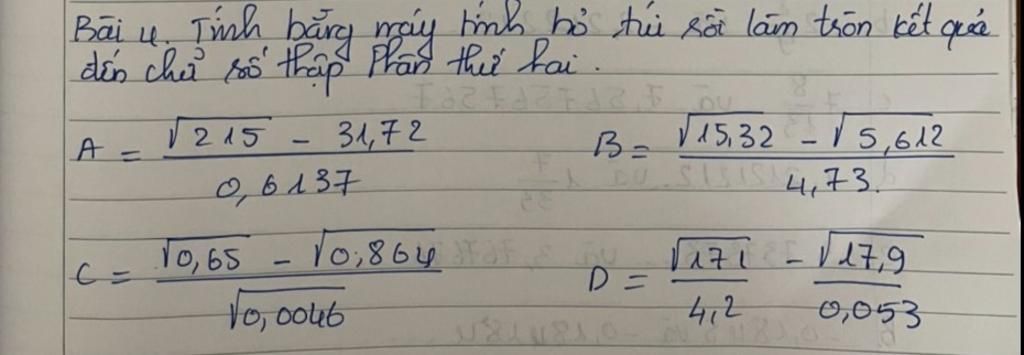 Bài 4. Tính bằng máy tính bỏ túi rồi làm tròn kết quả
đến chữ số thập phân thứ hai.
A = (√215 - 31,72) / 0,6137 B = (√15,32 - √5,612) / 4,73.
C = (√0,65 - √0,864) / √0,0046 D = √171 / 4,2 - √17,9 / 0,053